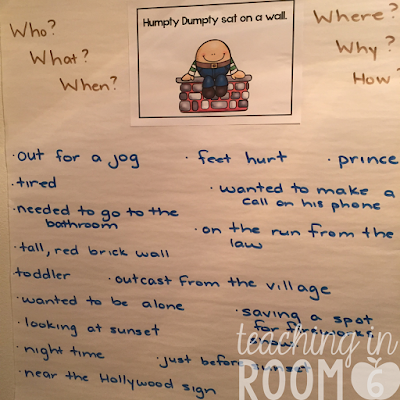 Who?
What?
When?
Humpty Dumpty sat on a wall.
Where?
Why?
How?
· out for a jog
· feet hurt
· prince
· tired
· wanted to make a
call on his phone
· needed to go to the
bathroom
· on the run from the
law
· tall, red brick wall
toddler
· outcast from the village
· wanted to be alone
· saving a spot
for fireworks
· looking at sunset
· night time
· just before sunset
· near the Hollywood sign
teaching in
ROOM 6